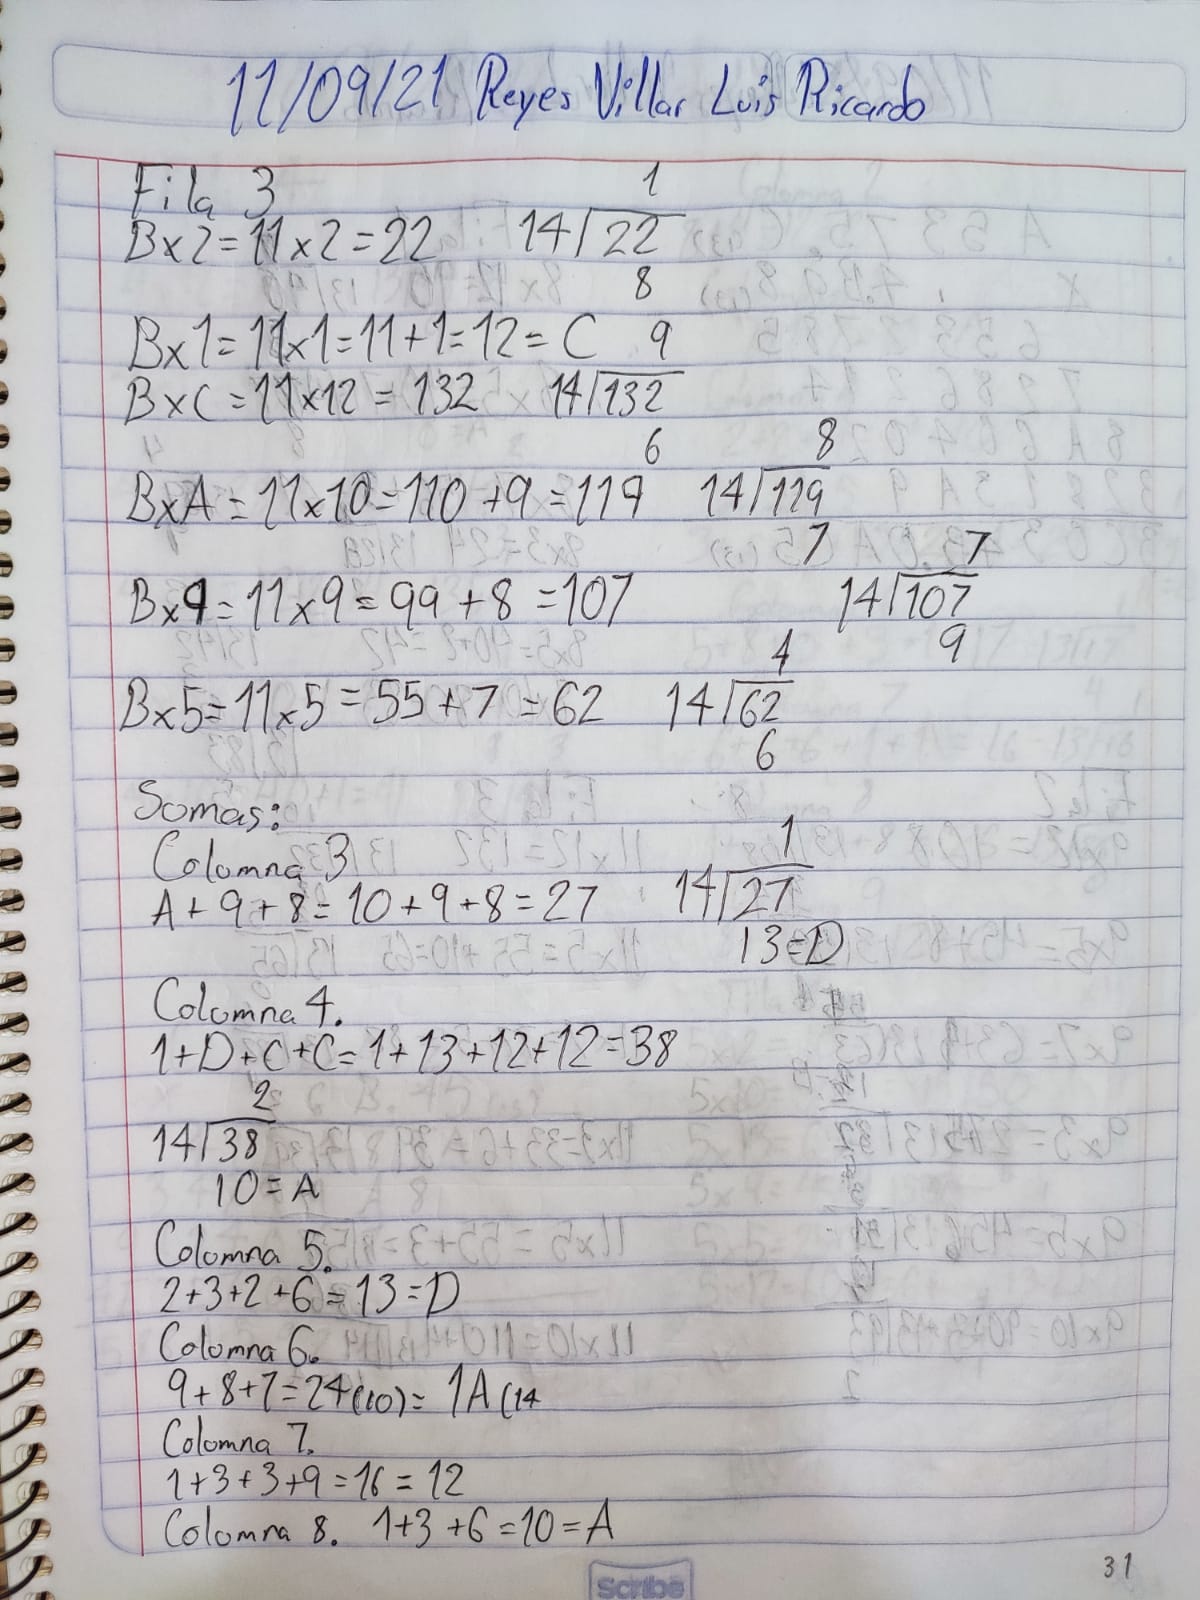 11/09/21 Reyes Villar Luis Ricardo
Fila 3 1
Bx2=11x2=22 14/22
8
Bx1=11x1=11+1=12=C 9
BxC=11x12=132 14/132
6 8
BxA=11x10=110+9=119 14/119
7 7
Bx9=11x9=99+8=107 14/107
9
4
Bx5=11x5=55+7=62 14/62
6
Somas:
Colomna 3 1
A+9+8=10+9+8=27 14/27
13=D
Colomna 4.
1+D+C+C=1+13+12+12=38
2
14/38
10=A
Colomna 5.
2+3+2+6=13=D
Colomna 6.
9+8+7=24(10)=1A(14
Colomna 7.
1+3+3+9=16=12
Colomna 8. 1+3+6=10=A
31
Scribe